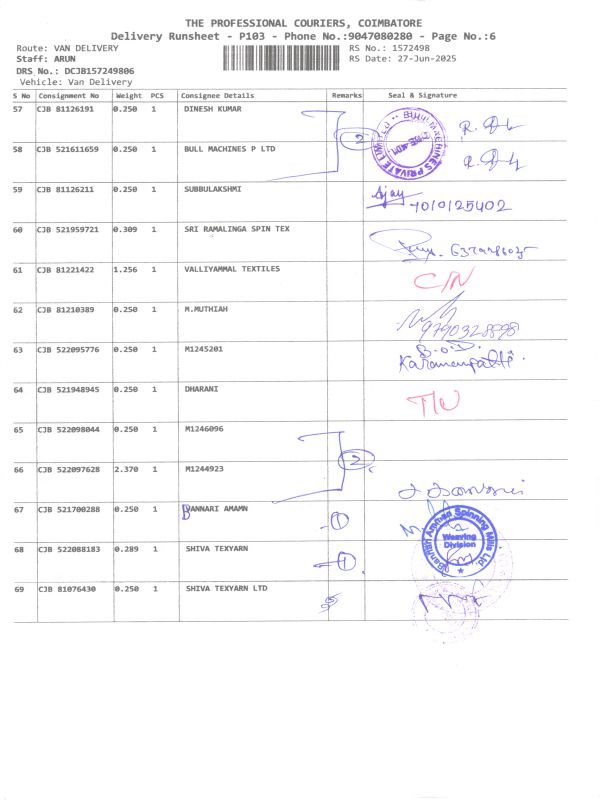 THE PROFESSIONAL COURIERS, COIMBATORE
Delivery Runsheet - P103 - Phone No.:9047080280 - Page No.:6
Route: VAN DELIVERY RS No.: 1572498
Staff: ARUN RS Date: 27-Jun-2025
DRS No.: DCJB157249806
Vehicle: Van Delivery
S No Consignment No Weight PCS Consignee Details Remarks Seal & Signature
57 CJB 81126191 0.250 1 DINESH KUMAR
2
58 CJB 521611659 0.250 1 BULL MACHINES P LTD
59 CJB 81126211 0.250 1 SUBBULAKSHMI Ajay
7010125402
60 CJB 521959721 0.309 1 SRI RAMALINGA SPIN TEX
61 CJB 81221422 1.256 1 VALLIYAMMAL TEXTILES C/N
62 CJB 81210389 0.250 1 M.MUTHIAH
9790328898
63 CJB 522095776 0.250 1 M1245201 B.O.D.
64 CJB 521948945 0.250 1 DHARANI
65 CJB 522098044 0.250 1 M1246096
2
66 CJB 522097628 2.370 1 M1244923
67 CJB 521700288 0.250 1 BANNARI AMAMN 1
Bannari Amman Spinning Mills Ltd.
Weaving
Division
68 CJB 522088183 0.289 1 SHIVA TEXYARN 1
69 CJB 81076430 0.250 1 SHIVA TEXYARN LTD